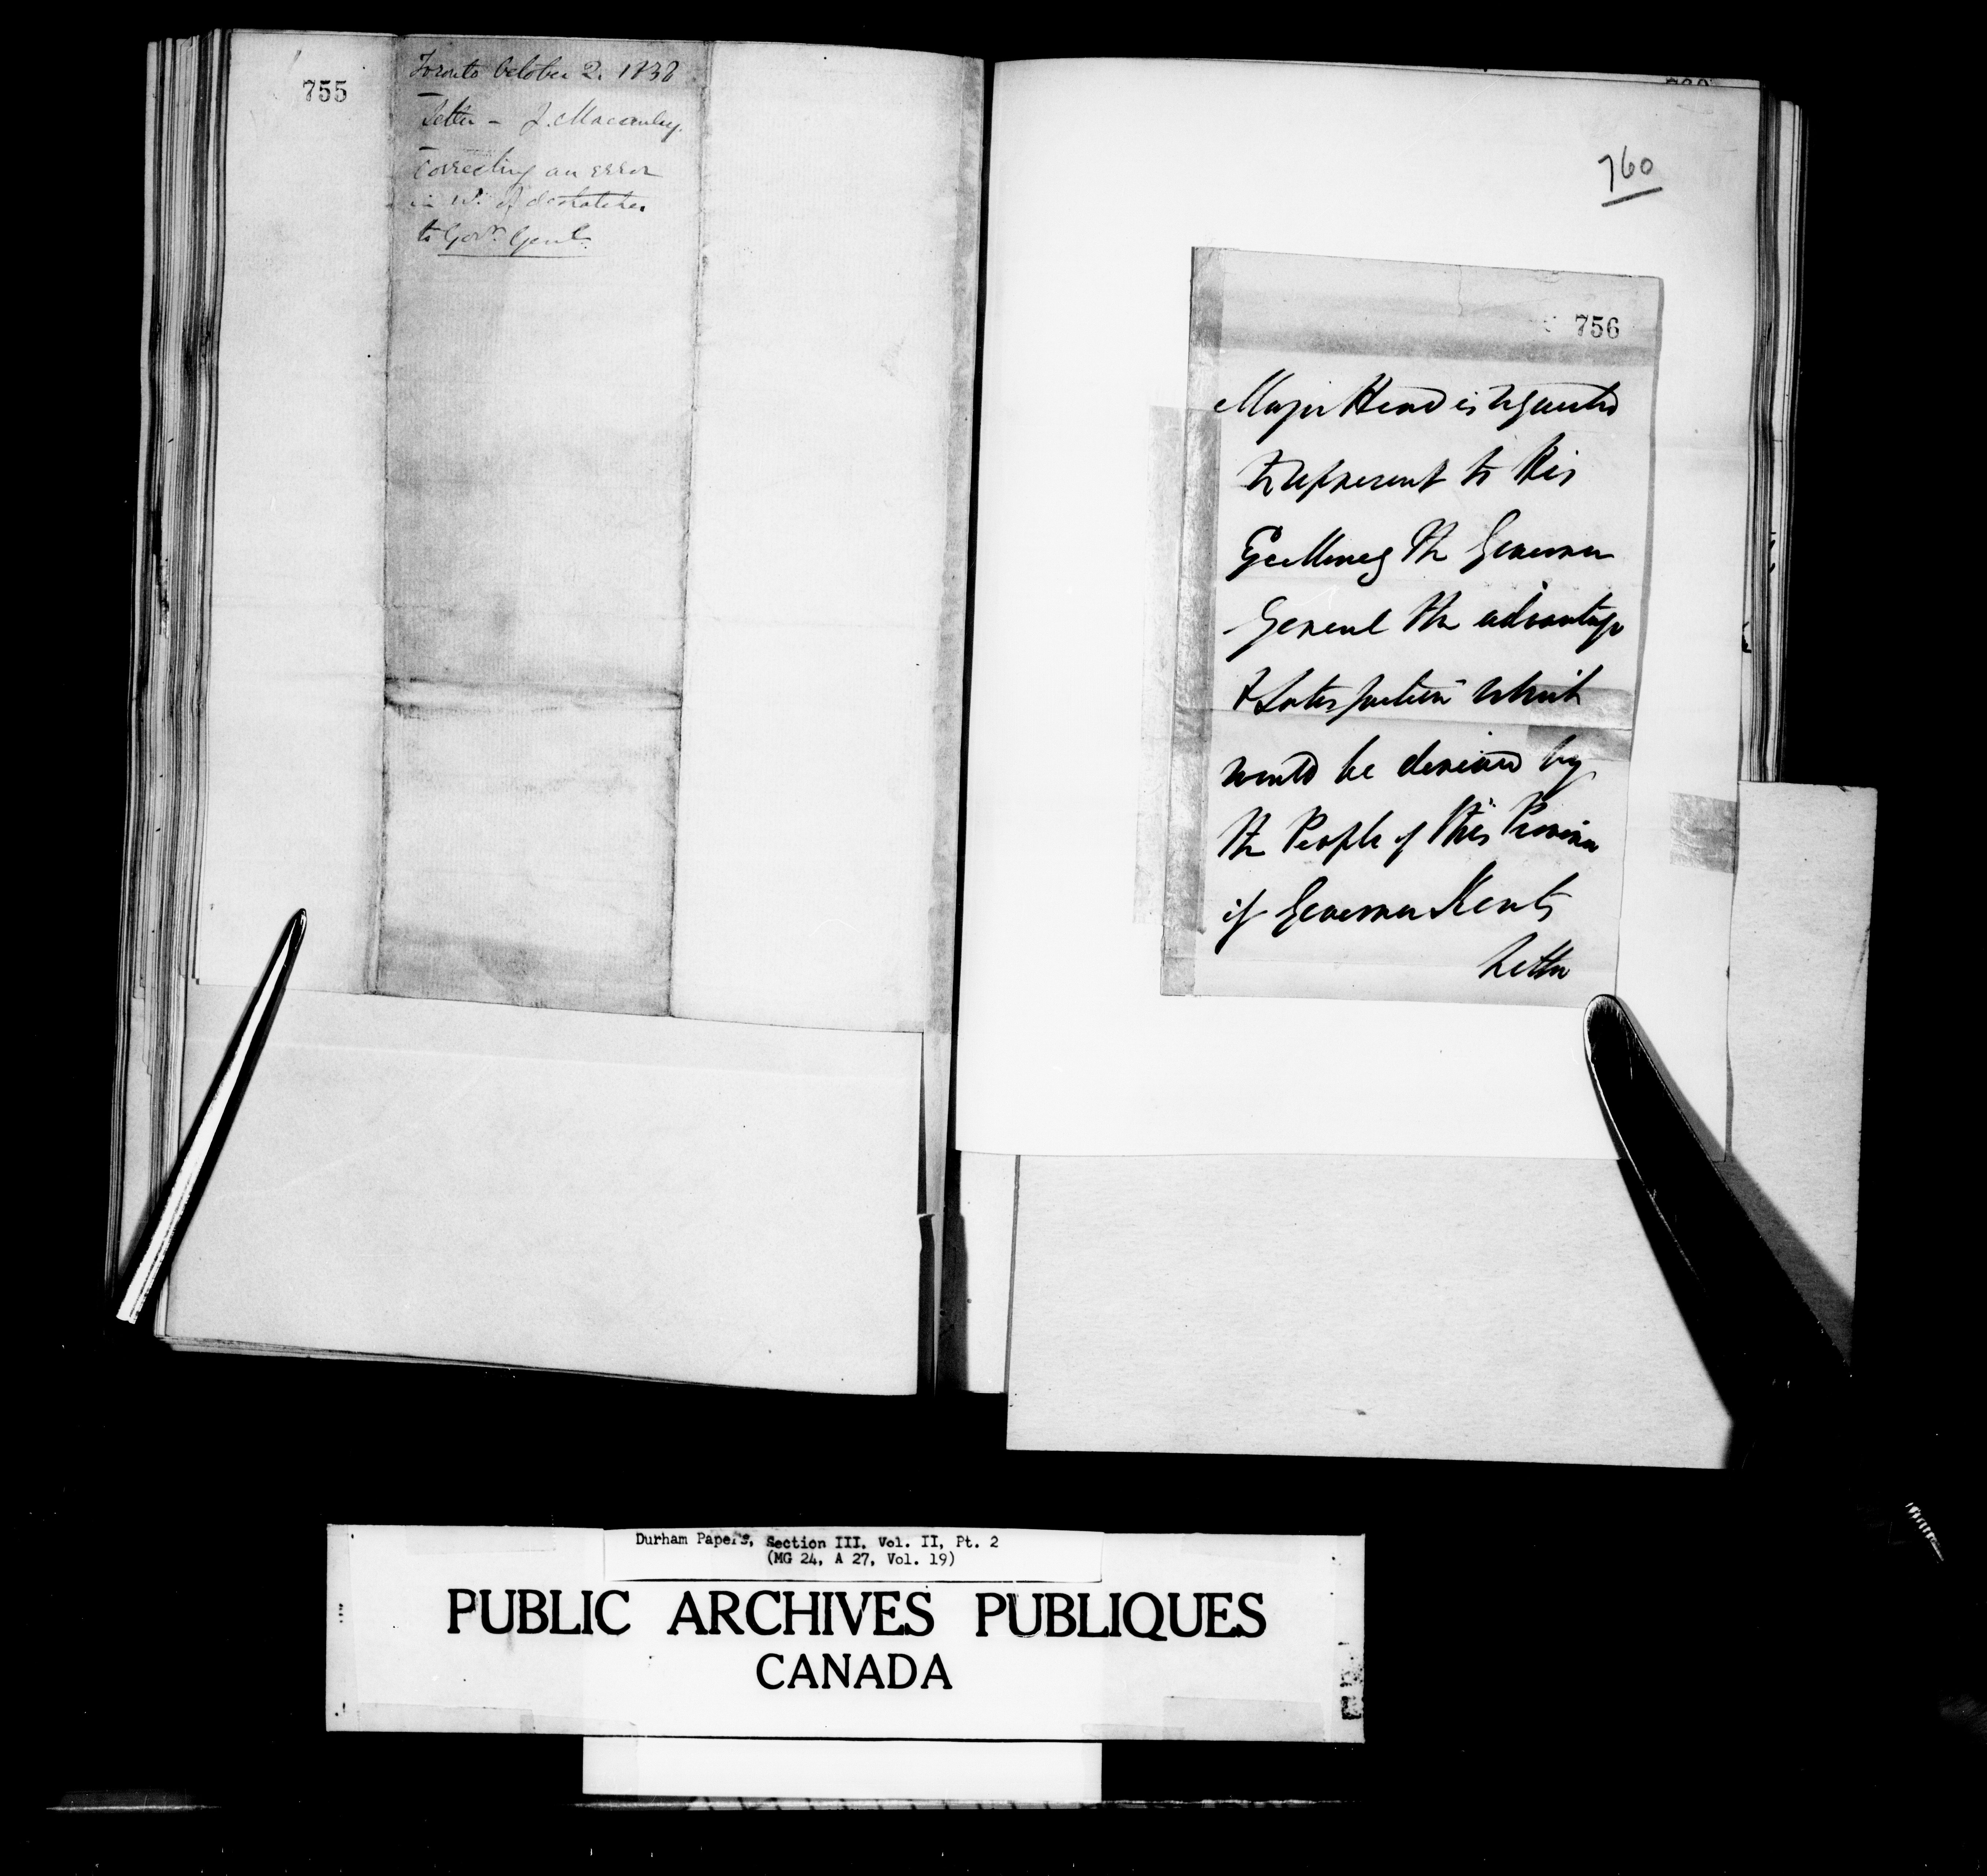 755
Toronto October 2. 1838
Letter - J. Macaulay.
Correcting an error
in No. of despatches
to Govr. Genl.
760
756
Major Head is requested
to represent to His
Excellency the Governor
General the advantage
& Satisfaction which
would be derived by
the People of this Province
if Governor Kent's
Letter
Durham Papers, Section III, Vol. II, Pt. 2
(MG 24, A 27, Vol. 19)
PUBLIC ARCHIVES PUBLIQUES
CANADA